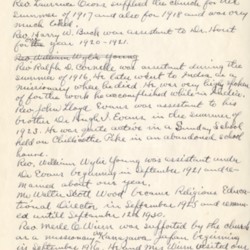 Rev. Laurence Cross supplied the church for the
summer of 1917 and also for 1918 and was very
much liked.
Rev. Harry W. Buck was assistant to Dr. Hurst
for the year 1920-1921.
Rev William Wylie Young
Rev Ralph D. Cornuelle was assistant during the
summer of 1916. He later went to India, as a
missionary when he died. He was very
of for the work he accomplished while in India.
Rev John Lloyd Evans was assistant to his
brother Dr. Hugh I. Evans in the summer of
1923. He was quite active in a Sunday School
held on Chillicothe Pike in an abandoned school
house.
Rev. William Wylie Young was assistant under
Dr. Evans beginning in September 1921 and re-
mained about one year.
Mr. Walter Scott Wood became Religious Educa-
tional Director in September 1925 and remain-
ed until September 15th 1930.
Rev. Merle C. Winn was supported by the church
as a missionary to Japan beginning
in September 1916. He and Mrs Winn visited